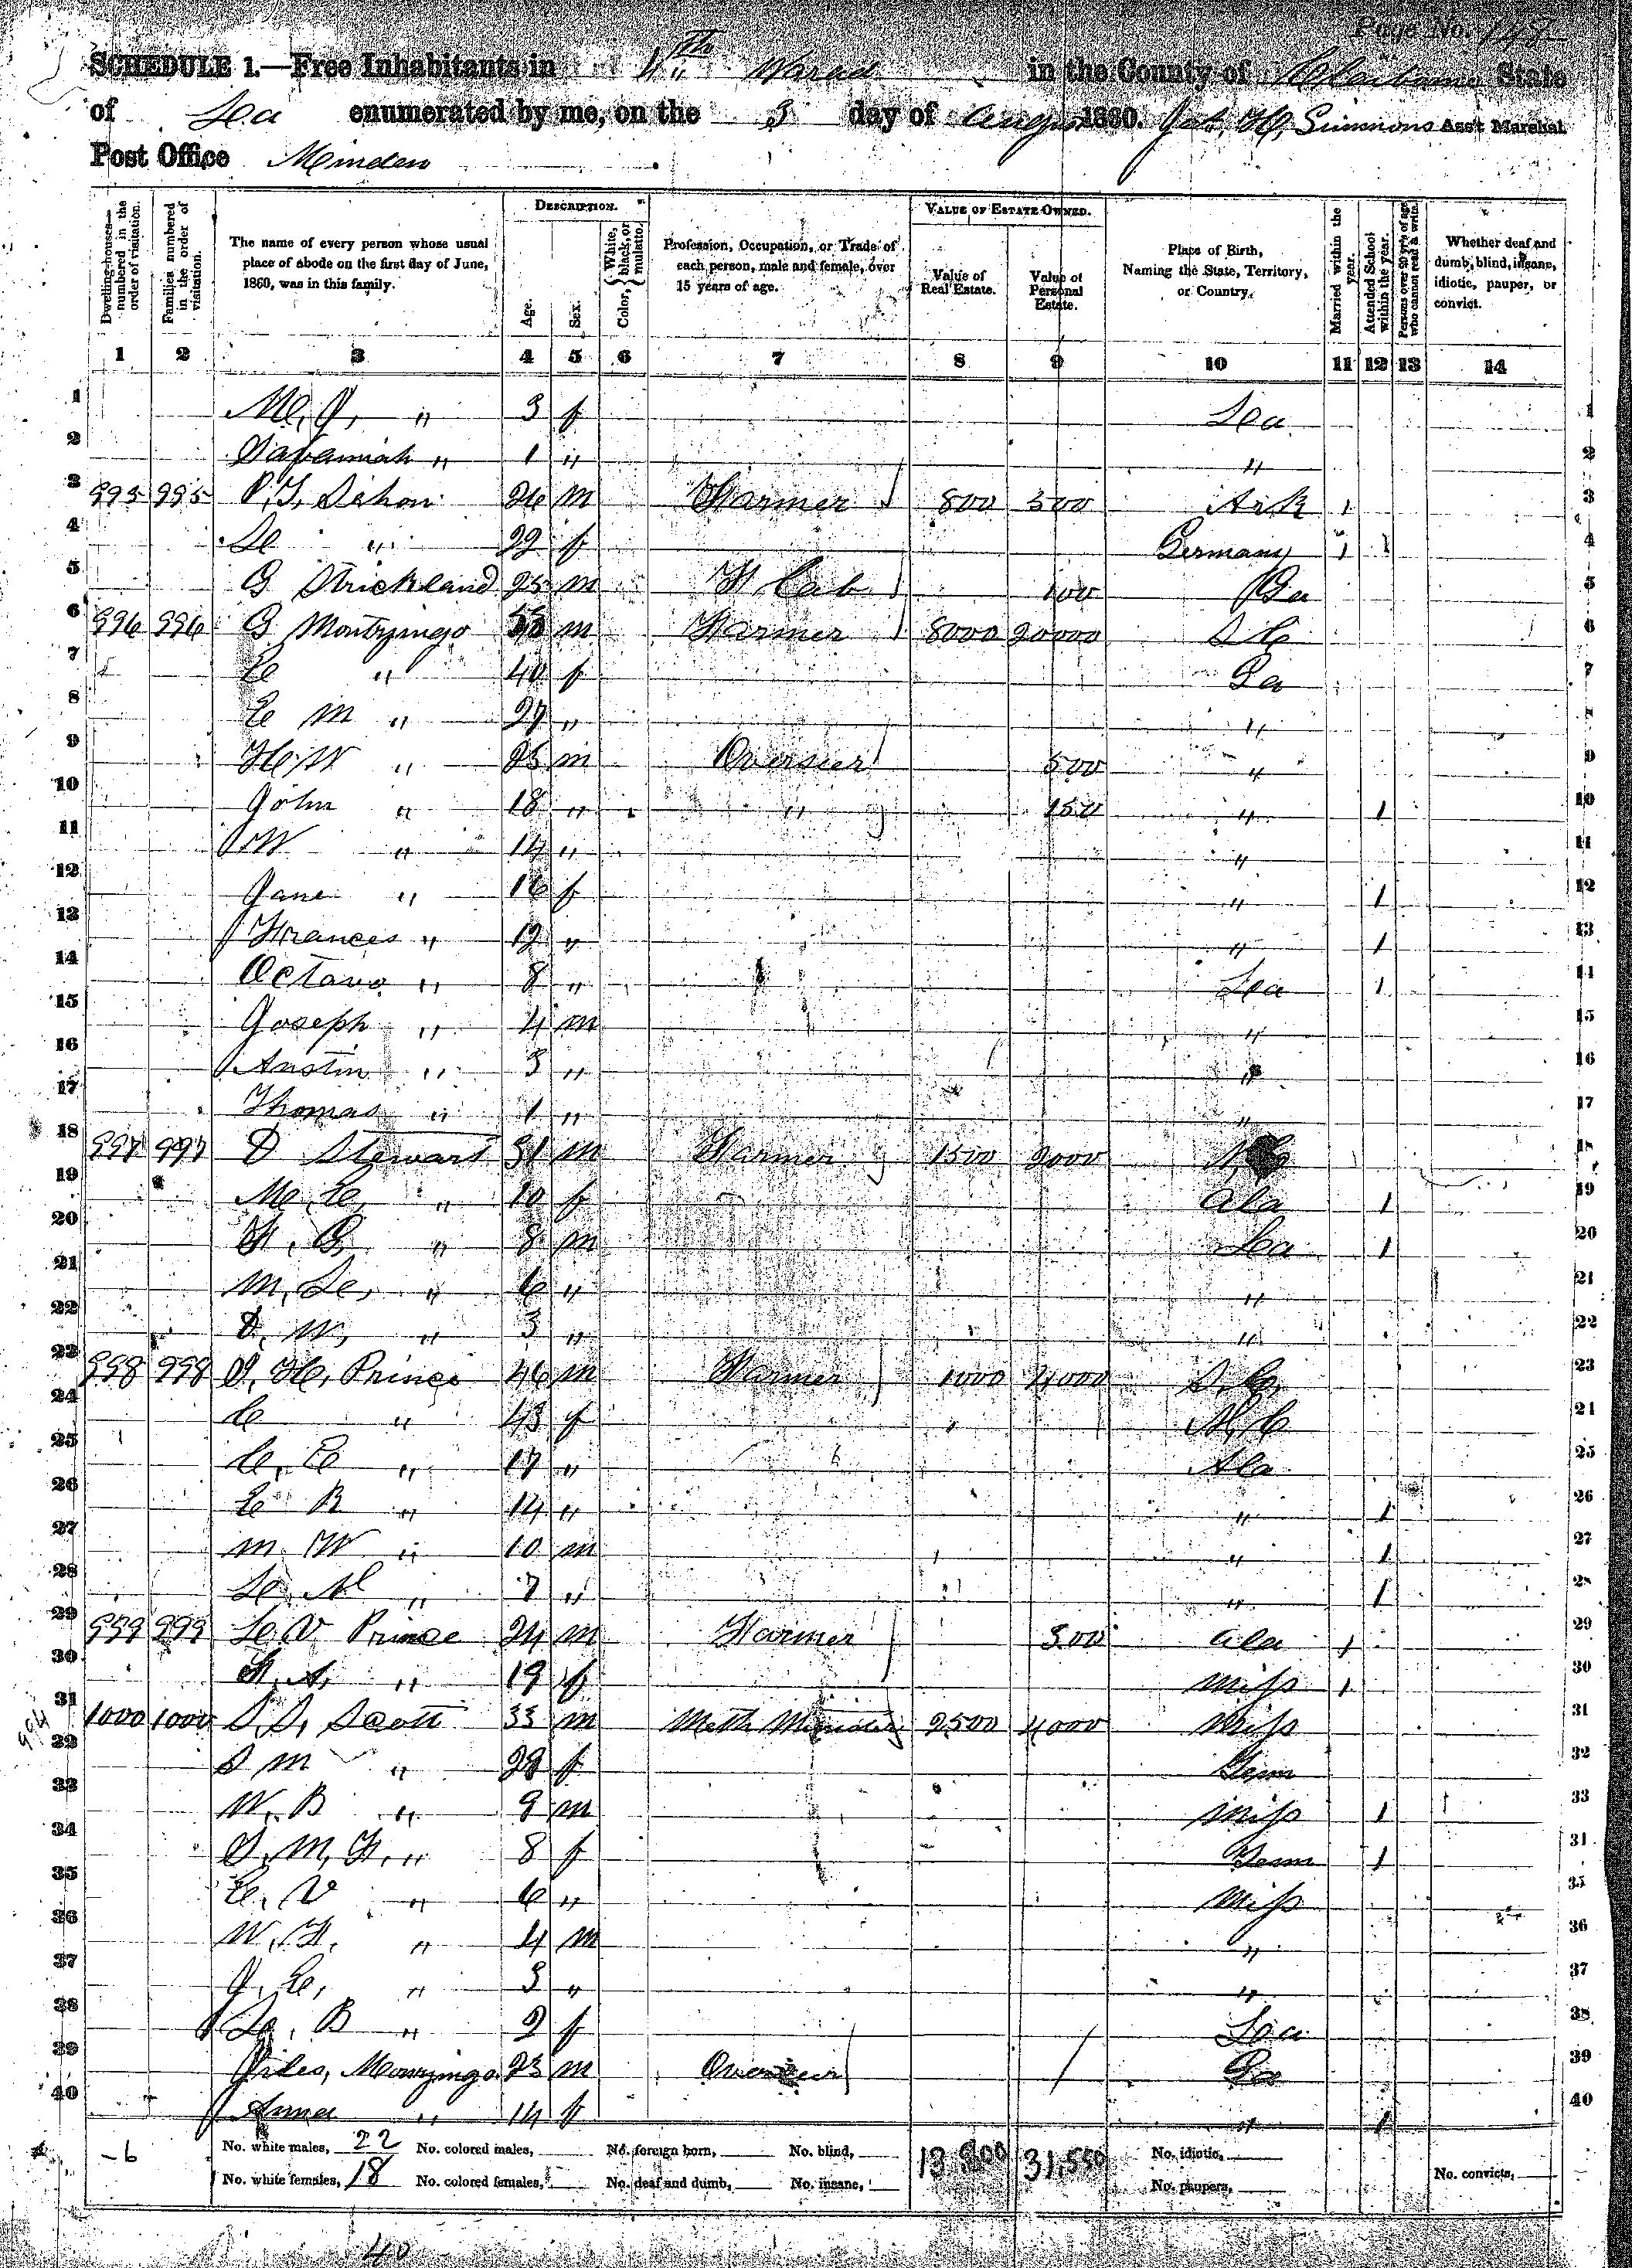 Page No. 148
SCHEDULE 1.—Free Inhabitants in 4th Ward in the County of Claiborne State
of La enumerated by me, on the 3 day of August 1860. Jas. H. Simmons Ass't Marshal
Post Office Minden
DESCRIPTION. VALUE OF ESTATE OWNED.
Dwelling-houses—numbered in the order of visitation.
Families numbered in the order of visitation.
The name of every person whose usual place of abode on the first day of June, 1860, was in this family.
Age. Sex. Color, White, black, or mulatto.
Profession, Occupation, or Trade of each person, male and female, over 15 years of age.
Value of Real Estate. Value of Personal Estate.
Place of Birth, Naming the State, Territory, or Country.
Married within the year. Attended School within the year. Persons over 20 y'rs of age who cannot read & write.
Whether deaf and dumb, blind, insane, idiotic, pauper, or convict.
1 2 3 4 5 6 7 8 9 10 11 12 13 14
1 M. J. " 3 f La 1
2 " 1 " " 2
3 995 995 26 m Farmer 800 500 Ark 1 3
4 " 22 f Germany 1 1 4
5 G Strickland 25 m F Lab 100 Ga 5
6 996 996 G Montzingo m Farmer 8000 20000 S C 6
7 E " 40 f Ga 7
8 E M " 27 " " 8
9 H. W " 25 m Oversier 500 " 9
10 John " 18 " " 150 " 1 10
11 W " 14 " " 11
12 Jane " 16 f " 1 12
13 Frances " 12 " " 1 13
14 Octavo " 8 " La 1 14
15 Joseph " 4 m " 15
16 Austin " 3 " " 16
17 Thomas " 1 " " 17
18 997 997 D Stewart 31 m Farmer 1500 2000 18
19 M. E. " 10 f Ala 1 19
20 " 8 m La 1 20
21 M. L. " 6 " " 21
22 D. W. " 3 " " 22
23 998 998 J. H. Prince 46 m Farmer 1000 4000 S. C. 23
24 C " 43 f N. C 24
25 C. E " 17 " Ala 25
26 E R " 14 " " 1 26
27 M. W " 10 m " 1 27
28 " 7 " " 1 28
29 999 999 L. V Prince 24 m Farmer 500 Ala 1 29
30 " 19 f Miss 1 30
31 1000 1000 S. S. Scott 33 m Meth Minister 2500 4000 Miss 31
32 S M " 28 f Tenn 32
33 W. B " 9 m Miss 1 33
34 S. M. F. " 8 f Tenn 1 34
35 E. V " 6 " Miss 35
36 W. F. " 4 m " 36
37 J. E. " 3 " " 37
38 L. B " 2 f La 38
39 Giles, Monzingo 23 m Oversier Ga 39
40 Anna " 14 f " 1 40
No. white males, 22 No. colored males, No. foreign born, No. blind, 13,800 31,550 No. idiotic,
No. white females, 18 No. colored females, No. deaf and dumb, No. insane, No. paupers, No. convicts,
40